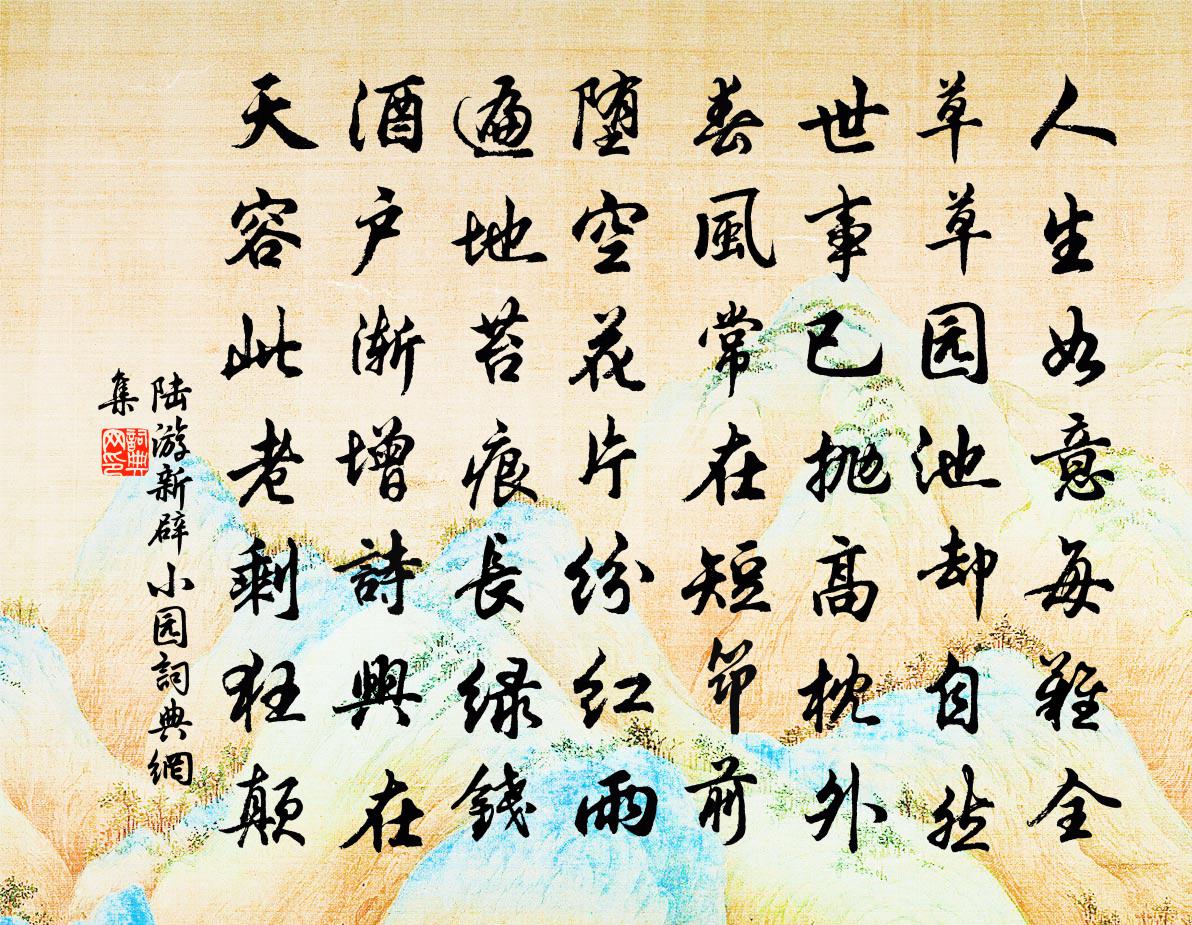 人生如意每難全
草草园池却自然
世事已抛高枕外
春風常在短笻前
堕空花片纷红雨
遍地苔痕長绿錢
酒户渐增詩興在
天容此老剩狂顛
陆游新辟小园詞典網
集
詞典网印